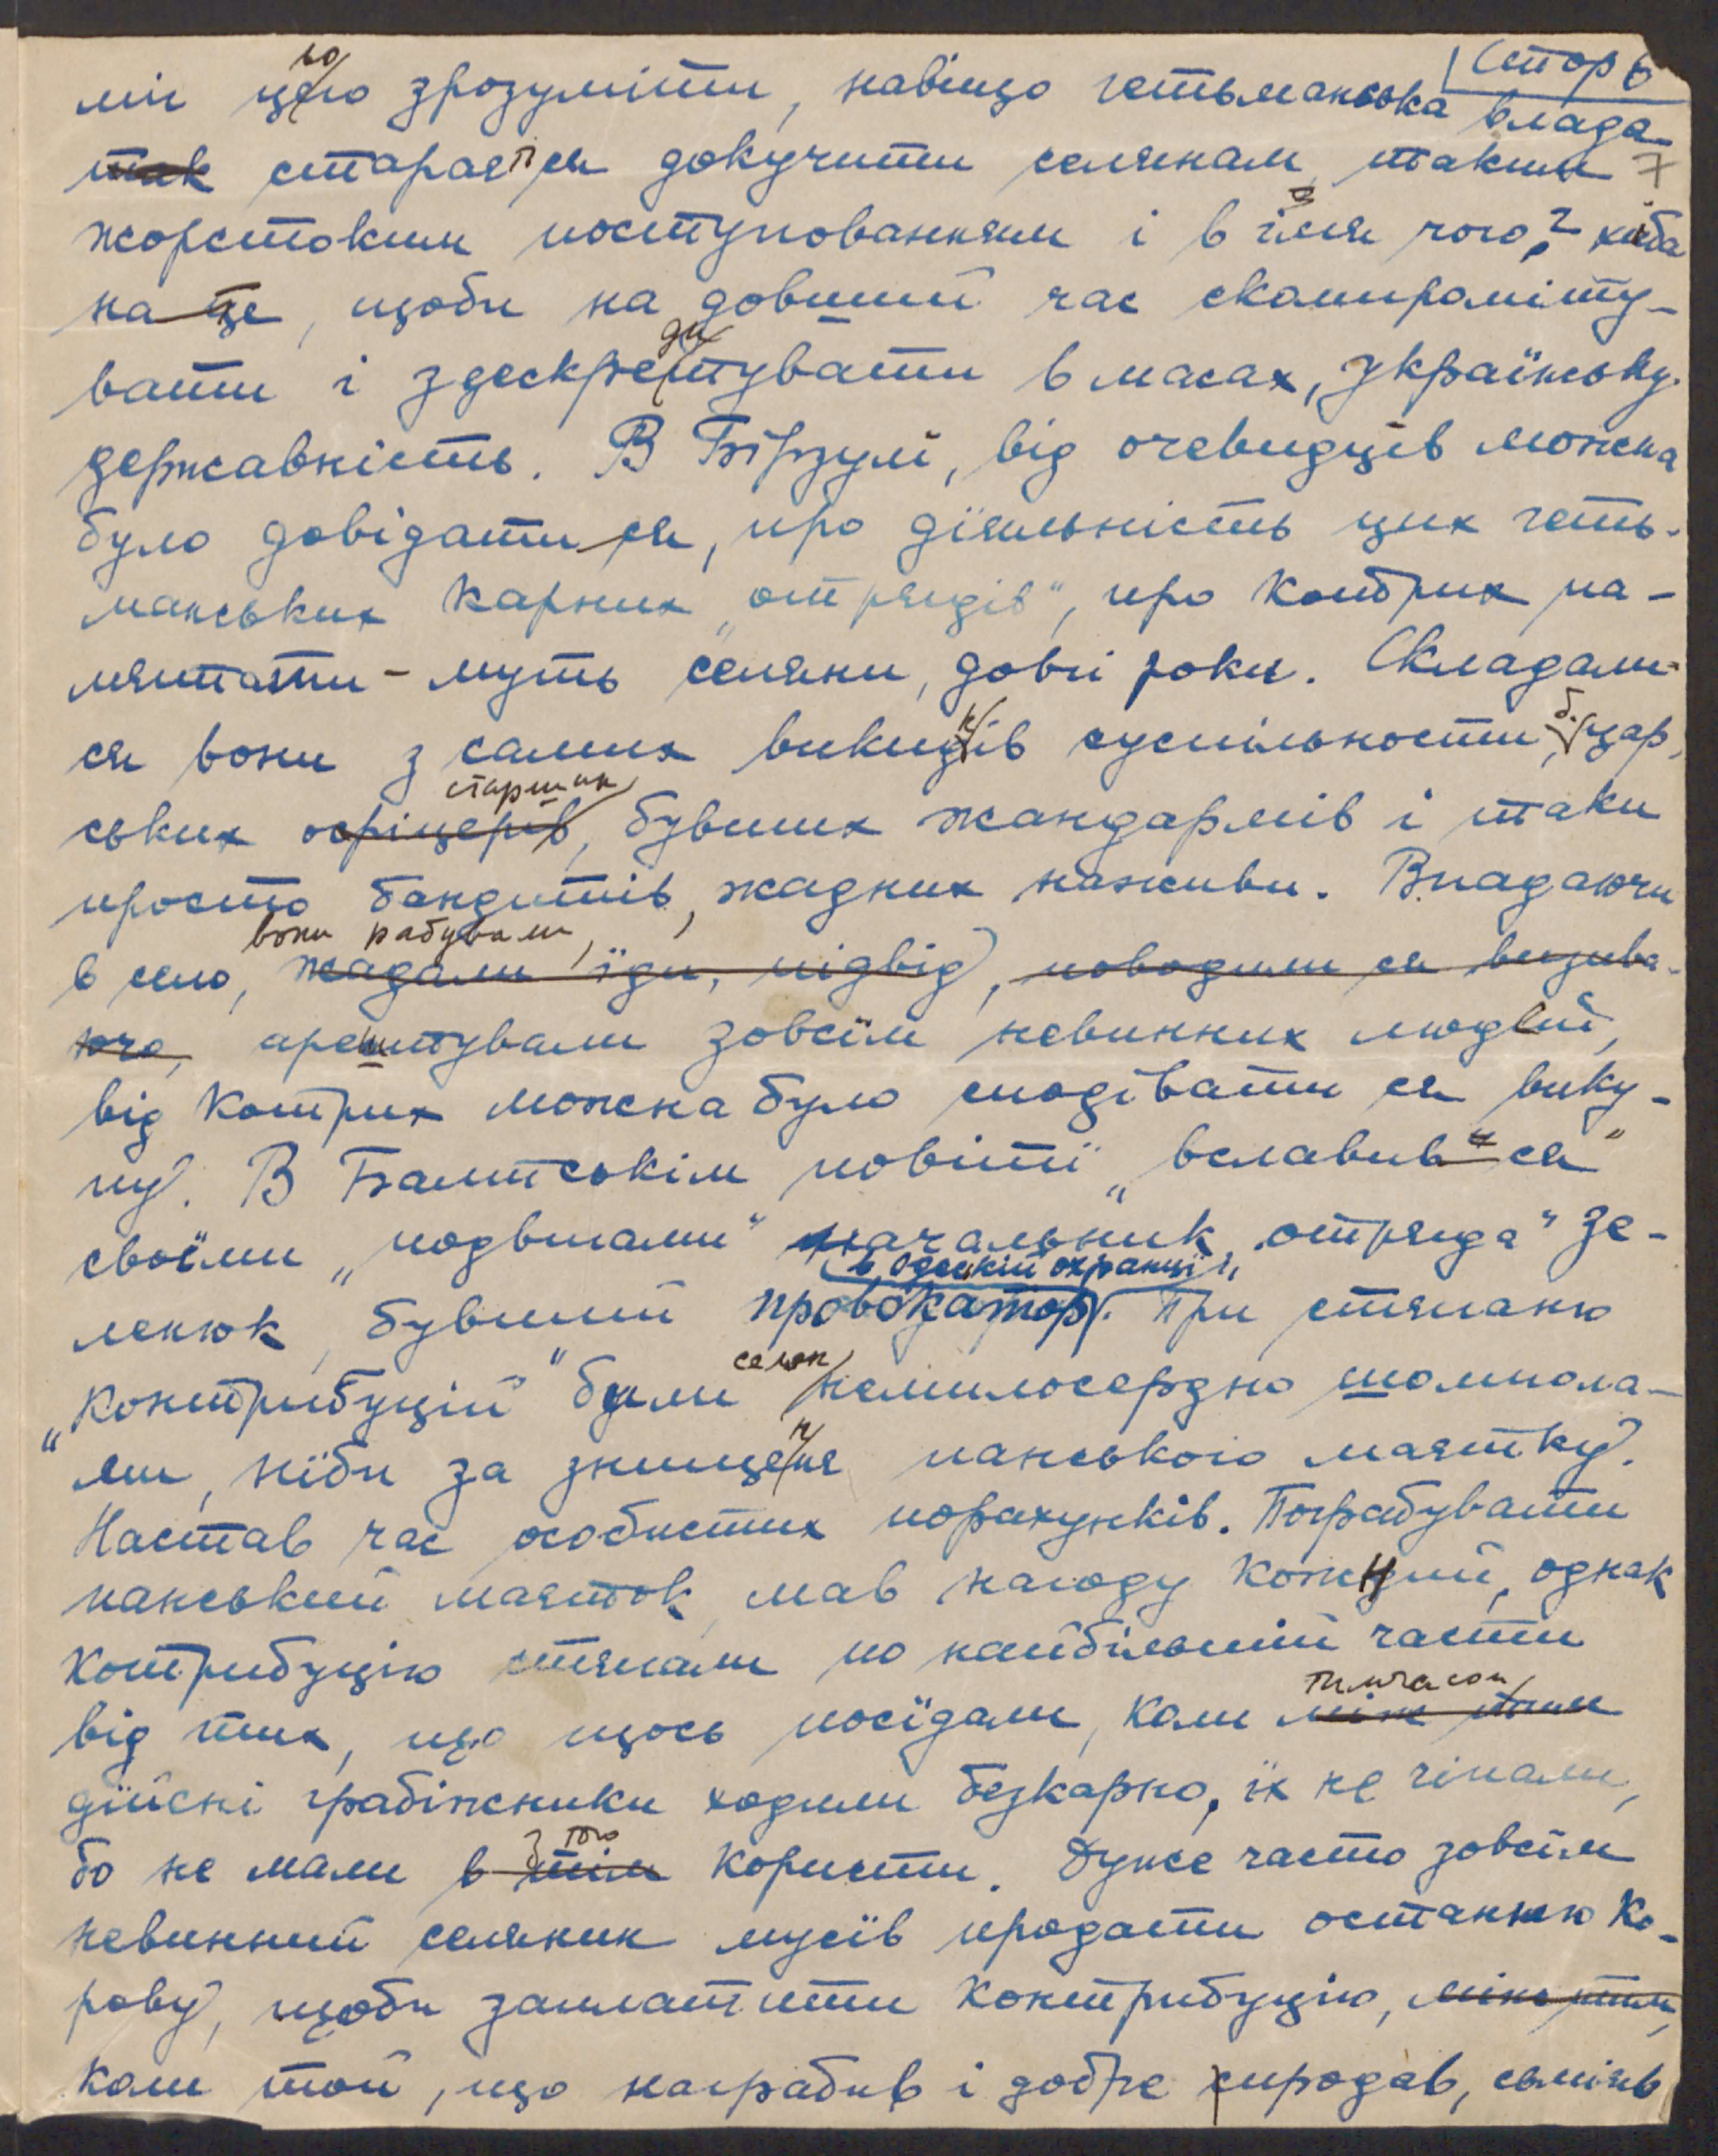 Стор 6
7
міг цього зрозуміти, навіщо гетьманська влада
так старається докучити селянам такими
жорстокими поступованнями і в імя чого? хиба
на це, щоби на довший час скомпроміту-
вати і здескредитувати в масах, Українську
державність. В Бірзулі, від очевидців можна
було довідати ся, про діяльність цих геть-
манських карних „отрядів", про котрих па-
мятати-муть селяни, довгі роки. Складали-
ся вони з самих викидків суспільности, б. цар,
старшин
ських офіцерів, бувших жандармів і таки
просто бандитів, жадних наживи. Впадаючи
вони рабували,
в село, жадали їди, підвід, поводили ся визива-
юче, арештували зовсім невинних людей,
від котрих можна було сподівати ся вику-
пу. В Балтськім повіті „вславив ся"
своїми „подвигами" начальник „отряда" Зе-
в Одеській охранці
ленюк, бувший провокатор. При стяганю
селян
„контрибуцій" били немилосердно шомпола-
ми, ніби за знищення панського маятку.
Настав час особистих порахунків. Пограбувати
панський маяток, мав нагоду кожний, однак
контрибуцію стягали по найбільшій части
тимчасом
від тих, що щось посїдали, коли між тим
дїйсні грабіжники ходили безкарно, їх не чіпали,
з того
бо не мали в тім користи. Дуже часто зовсім
невинний селянин мусїв продати останню ко-
рову, щоби заплатити контрибуцію, між тим,
коли той, що награбив і добре спродав, сміяв